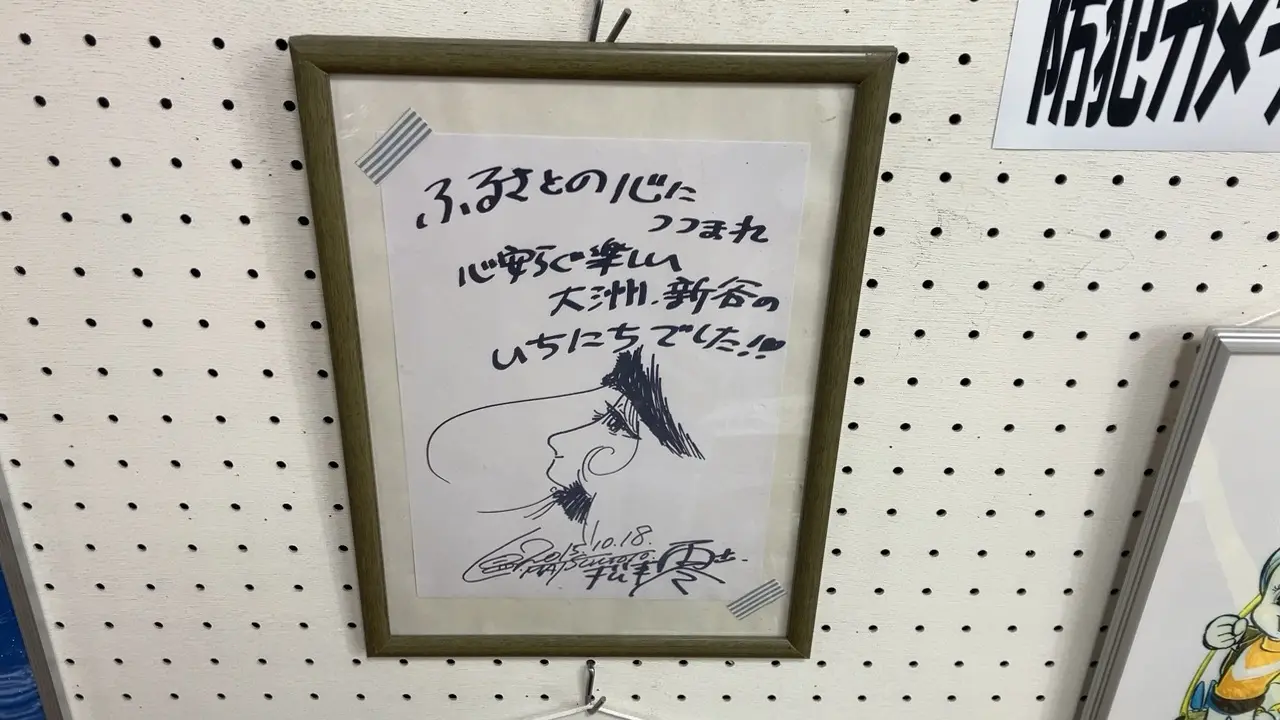 ふるさとの心に
つつまれ
心安らぐ楽しい
大洲、新谷の
いちにちでした!!
2015.10.18.
MATSUMOTO.
松本零士.
防犯カメラ